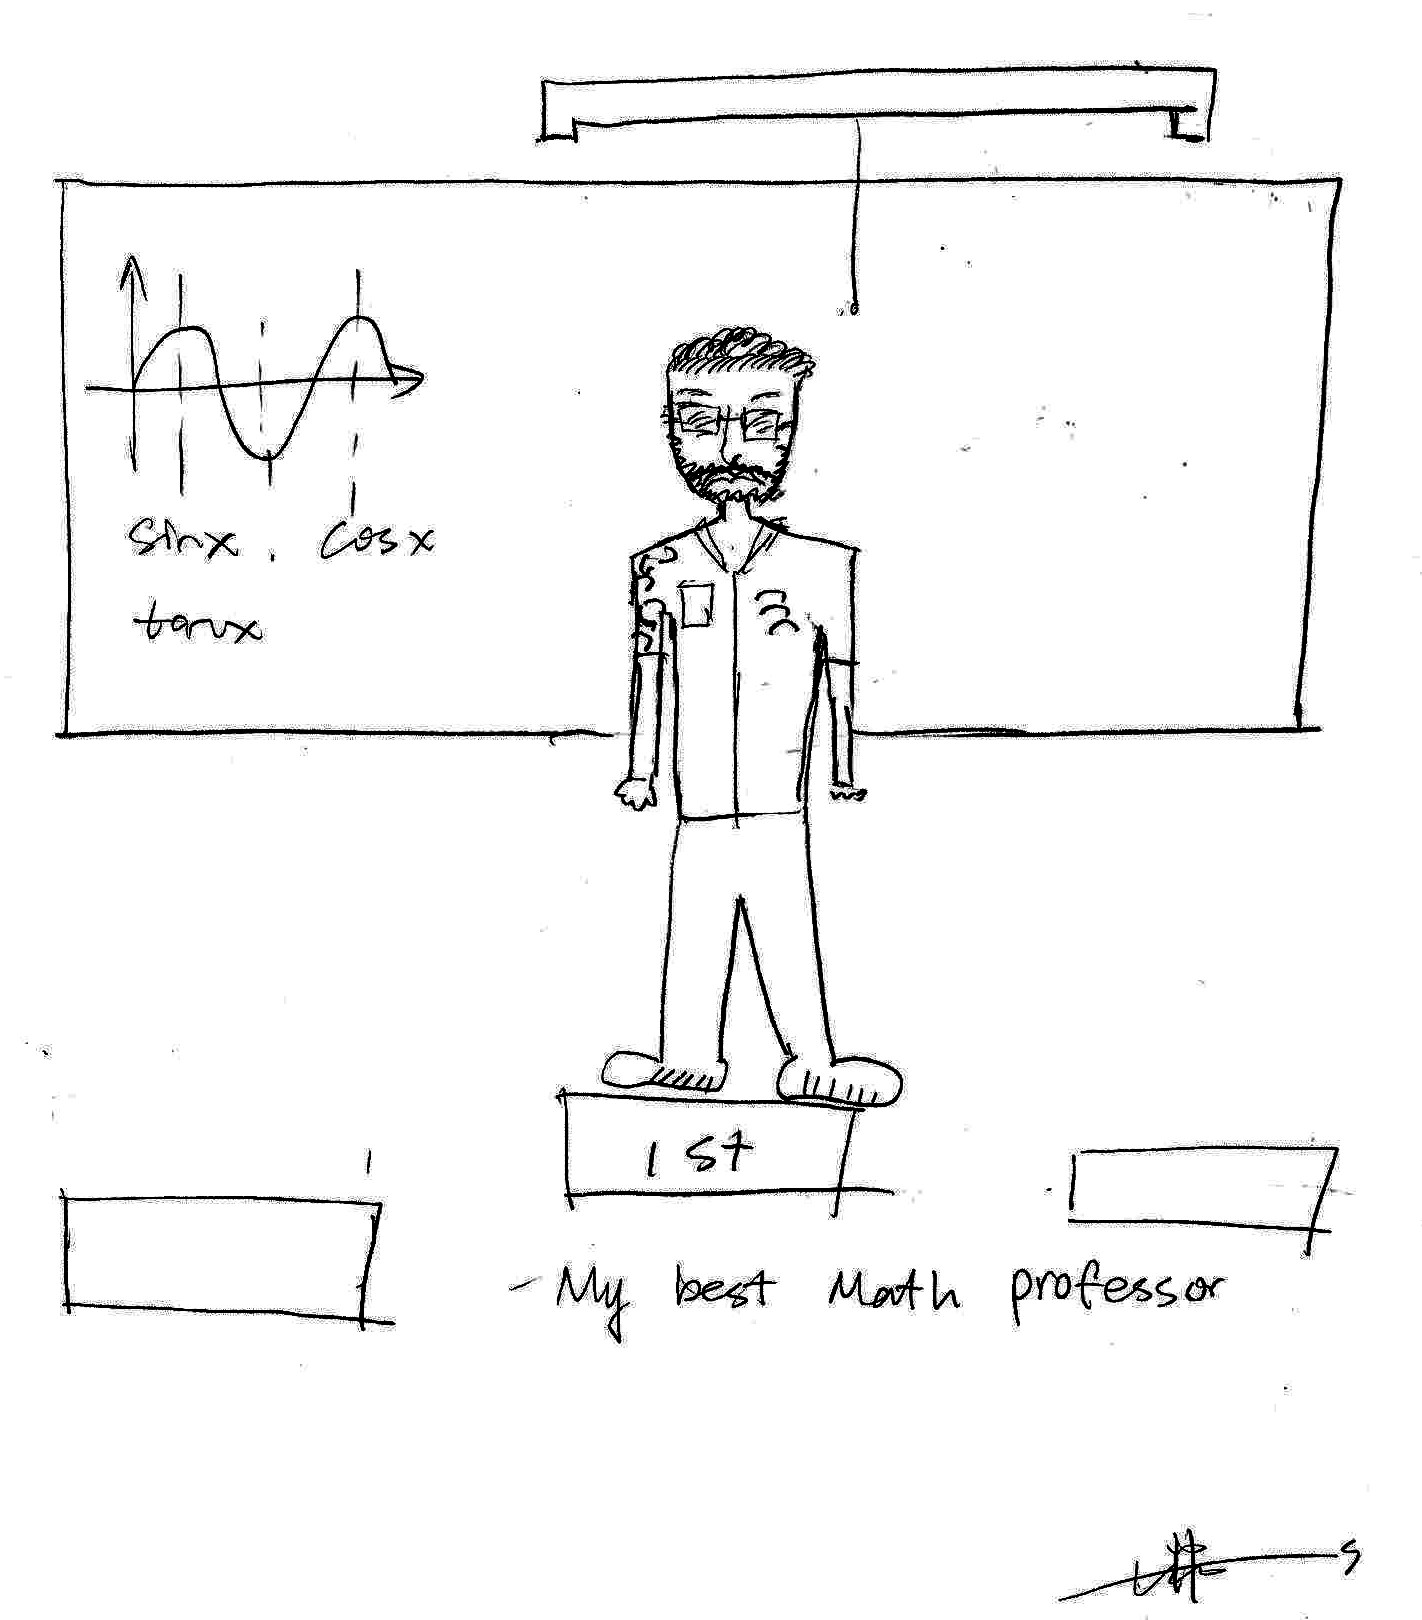 sinx, cosx
tanx
1st
- My best Math professor